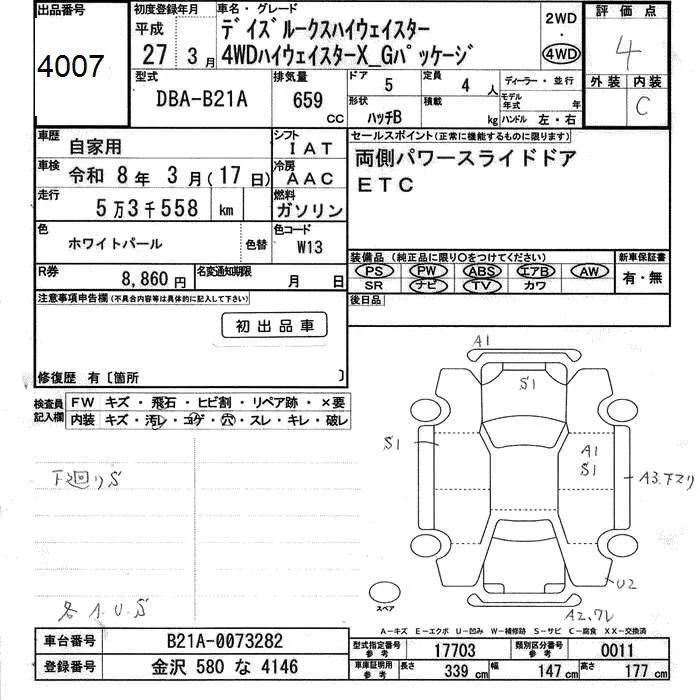 出品番号
4007
初度登録年月
平成
27 3月
車名・グレード
デイズルークスハイウェイスター
4WDハイウェイスターX_Gパッケージ
2WD
・
4WD
評価点
4
外装 内装
C
型式
DBA-B21A
排気量
659
CC
ドア 5
定員 4 人
ディーラー・並行
形状
ハッチB
積載 kg
モデル年式 年
ハンドル 左・右
車歴 自家用
シフト IAT
車検 令和 8年 3月(17日)
冷房 AAC
走行 5万3千558 km
燃料 ガソリン
色 ホワイトパール
色替
色コード W13
R券 8,860円
名変通知期限 月 日
セールスポイント(正常に機能するものに限ります)
両側パワースライドドア
ETC
装備品(純正品に限り○をつけてください)
PS PW ABS エアB AW
SR ナビ TV カワ
新車保証書
有・無
後日品
注意事項申告欄(不具合内容等は具体的に記入して下さい)
初出品車
修復歴 有〔箇所 〕
検査員記入欄
FW キズ・飛石・ヒビ割・リペア跡・×要
内装 キズ・汚レ・コゲ・穴・スレ・キレ・破レ
下廻りS
各A.U.S
A1
S1
S1
A1
S1
A3.下マリ
U2
A2.ワレ
スペア
A-キズ E-エクボ U-凹み W-補修跡 S-サビ C-腐食 XX-交換済
車台番号 B21A-0073282
登録番号 金沢 580 な 4146
型式指定番号 参考 17703
類別区分番号 参考 0011
車庫証明用 参考 長さ 339cm 幅 147cm 高さ 177cm